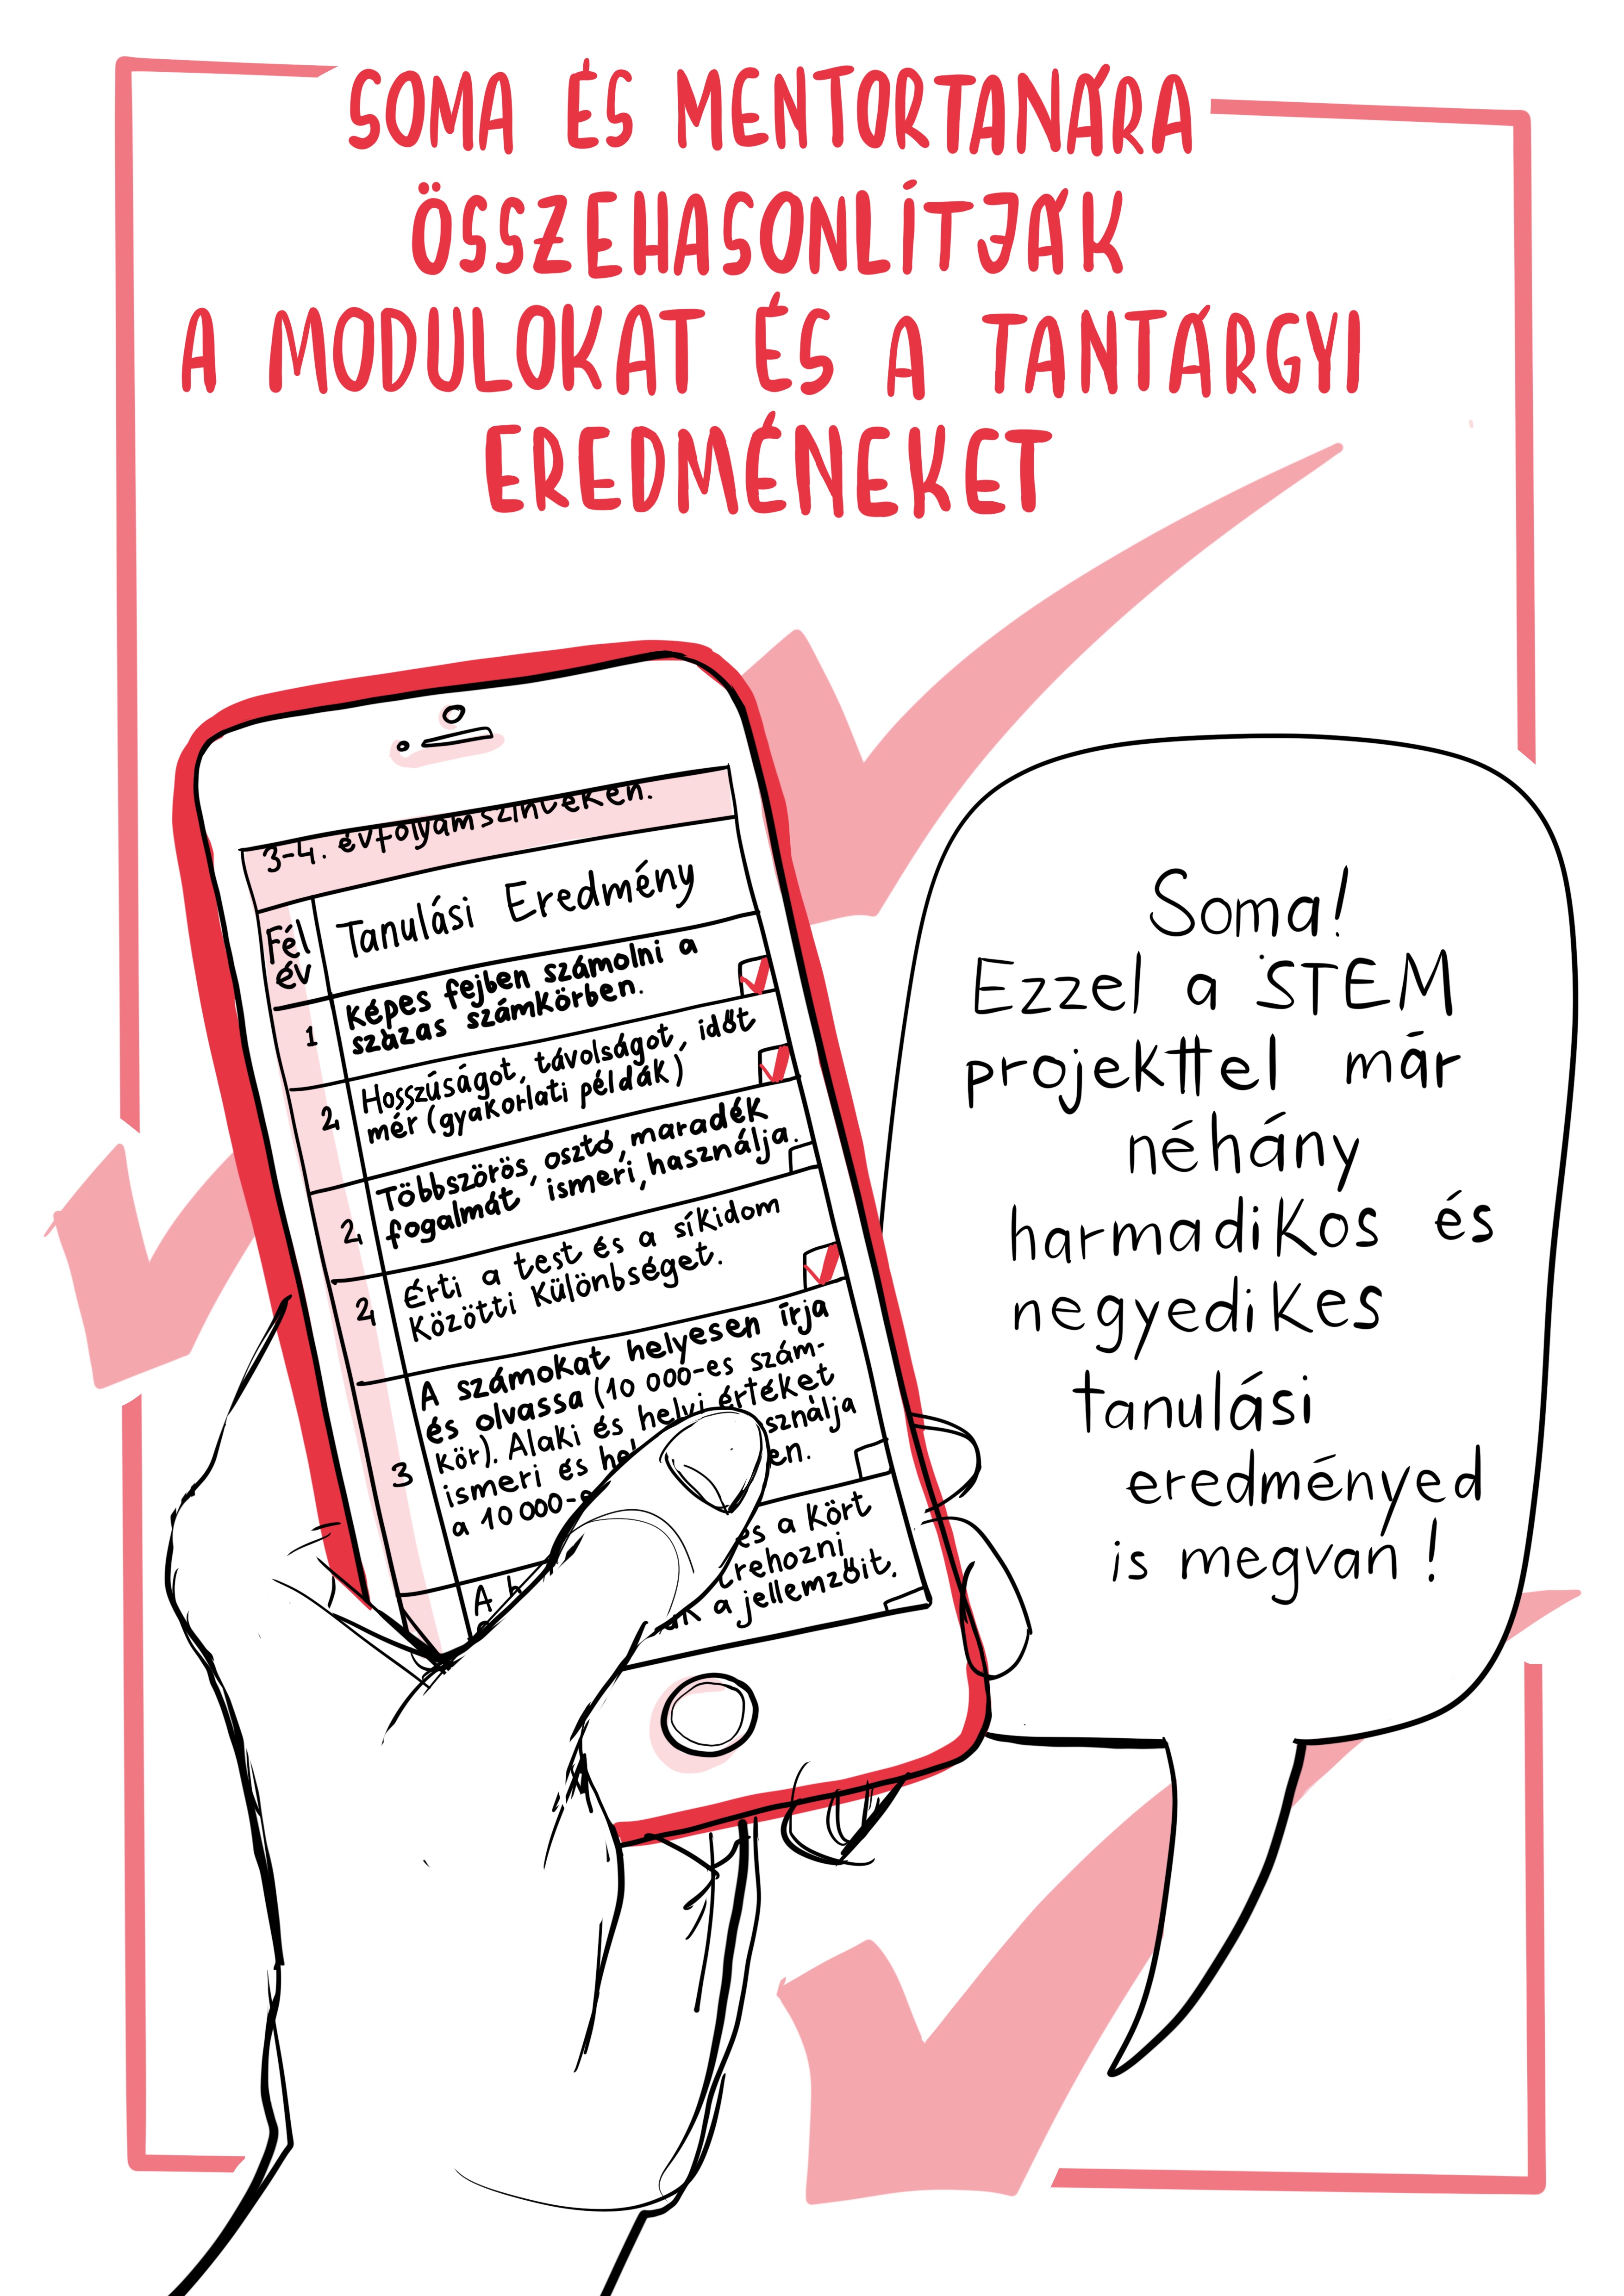 SOMA ÉS MENTORTANÁRA
ÖSSZEHASONLÍTJÁK
A MODULOKAT ÉS A TANTÁRGYI
EREDMÉNEKET
3-4. évfolyamszinteken.
Fél
év
Tanulási Eredmény
1
Képes fejben számolni a
százas számkörben.
2
Hosszúságot, távolságot, időt
mér (gyakorlati példák)
2
Többszörös, osztó, maradék
fogalmát ismeri, használja.
2
Érti a test és a síkidom
közötti különbséget.
3
A számokat helyesen írja
és olvassa (10 000-es szám-
kör). Alaki és helyi értéket
ismeri és he sználja
a 10 000-e en.
A
és a kört
trehozni
a jellemzőit.
Soma!
Ezzel a STEM
projekttel már
néhány
harmadikos és
negyedikes
tanulási
eredményed
is megvan!